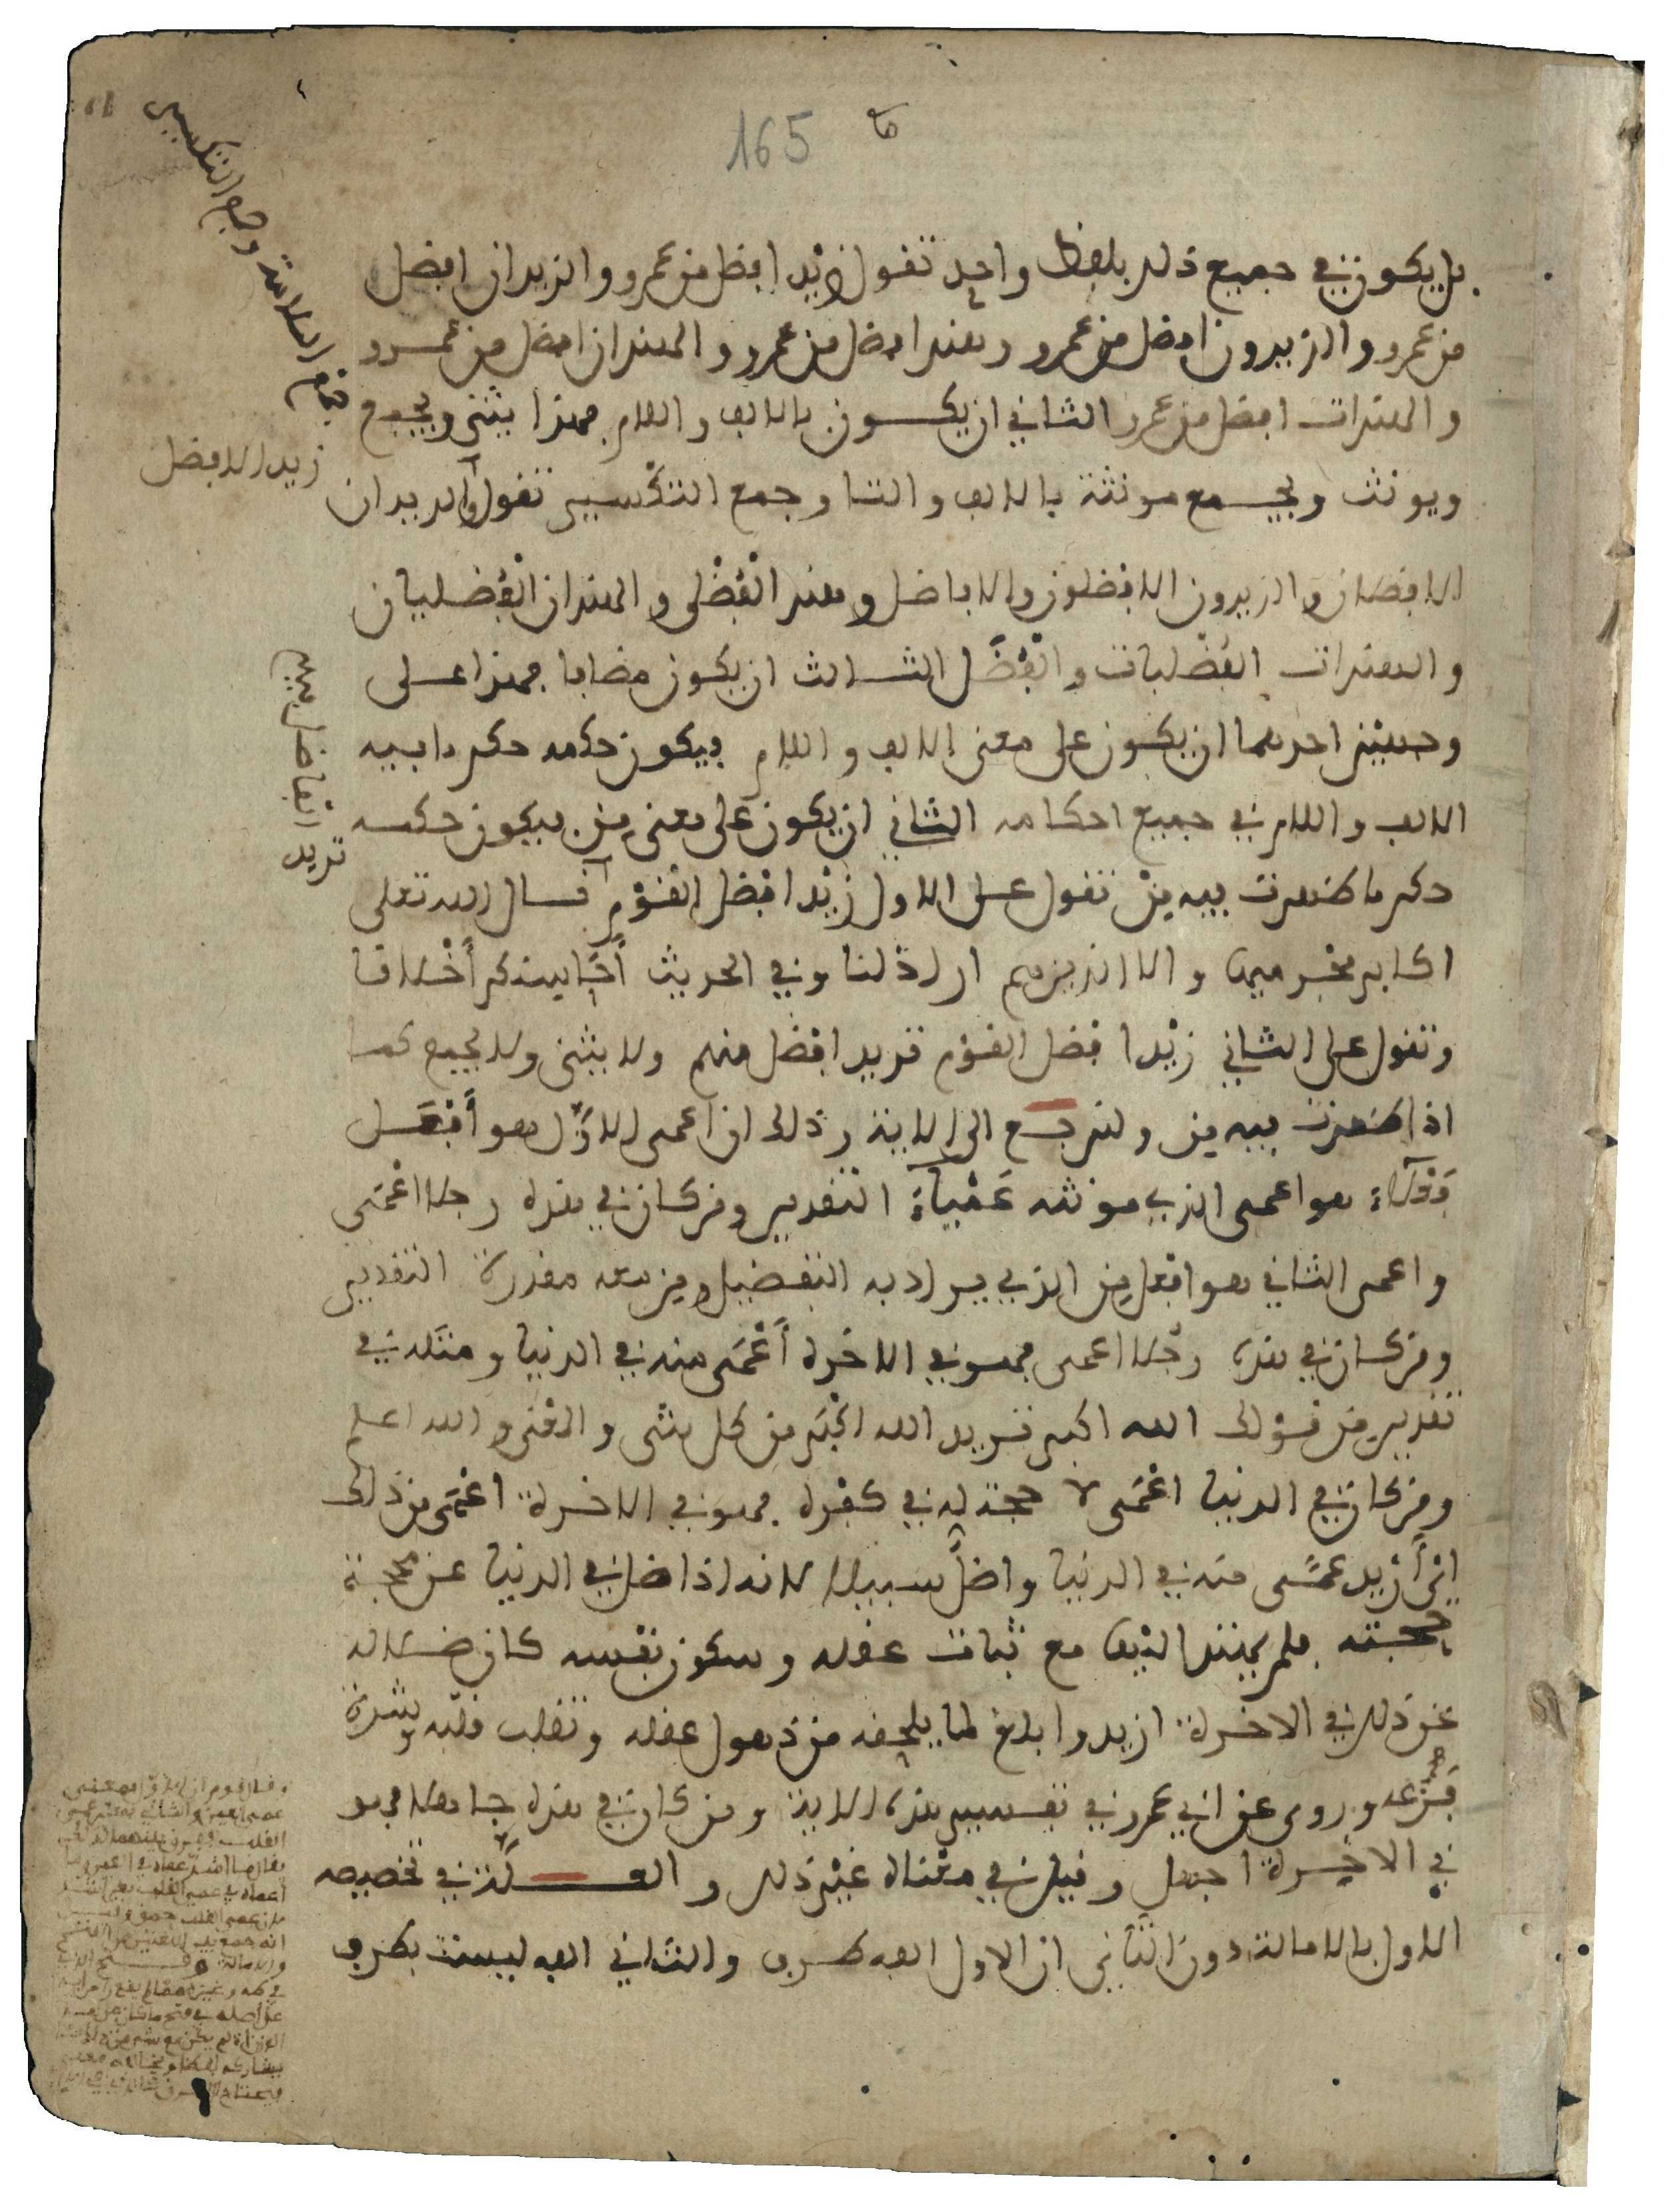 165
بل يكون في جميع ذلك بلفظ واحد تقول زيد افضل من عمرو والزيدان افضل
من عمرو والزيدون افضل من عمرو وهند افضل من عمرو والهندان افضل من عمرو
والهندات افضل من عمرو الثاني ان يكون بالالف واللام فهذا يثنى ويجمع
جمع السلامة وجمع التكسير
ويونث ويجمع مونثه بالالف والتا وجمع التكسير تقول والزيدان
زيد الافضل
الافضلان والزيدون الافضلون والافاضل وهند الفُضْلى والهندان الفُضْليان
والهندات الفُضْليات والفُضَّل الثالث ان يكون مضافا فهذا على
وجهين احدهما ان يكون على معنى الالف واللام فيكون حكمه حكم ما فيه
الالف واللام في جميع احكامه الثاني ان يكون على معنى مِن فيكون حكمه
حكم ما ظهرت فيه مِنْ تقول على الاول زيْد افْضل القوْم قال الله تعلى
تريد الفاضل فيهم
اكابر مجْرميها والا الذين هم اراذلنا وفي الحديث أحَاسِنكم أَخْلاقا
وتقول على الثاني زيْد افضل القوْم تريد افضل منهم ولا يثنى ولا يجمع كما
اذا ظهرت فيه مِن ولنرجع الى الاية وذلك ان اعمى الاوَّل هو أَفْعَل
فَعْلاء هو اعمى الذي مونثه عَمْيآء التقدير ومن كان في هذه رجلا اعْمَى
واعمى الثاني هو افعل مِن الذي يراد به التفضيل ومِن معه مقدرة التقدير
ومن كان في هذه رجُلا اعمى فهو في الاخرة أَعْمَى منه في الدنيا ومثله في
تقدير مِن قوْلك الله اكبر تريد الله اكْبَر من كل شى والمعْنى والله اعلم
ومن كان في الدنيا اعْمَى لا حجة له في كفْره فهو في الاخرة اعْمَى من ذلك
ايْ أَزْيد عمًى منه في الدنيا واضلُّ سبيلا لانه اذا ضل في الدنيا عن محجة
حجته فلم يهتد اليْها مع ثبات عقله وسكون نفْسه كان ضلاله
عن ذلك في الاخرة ازيد وابلغ لما يلحقه من ذهول عقله وتقلب قلْبه وشدة
فَزَعه وروى عن ابي عمرو في تفسير هذه الاية ومن كان في هذه جاهلا فهو
في الاخِرة اجهل وقيل في معْناه غيْر ذلك والعلّة في تخصيصه
الاول بالامالة دون الثاني ان الاول الفه طرف والثاني الفه ليست بطرف